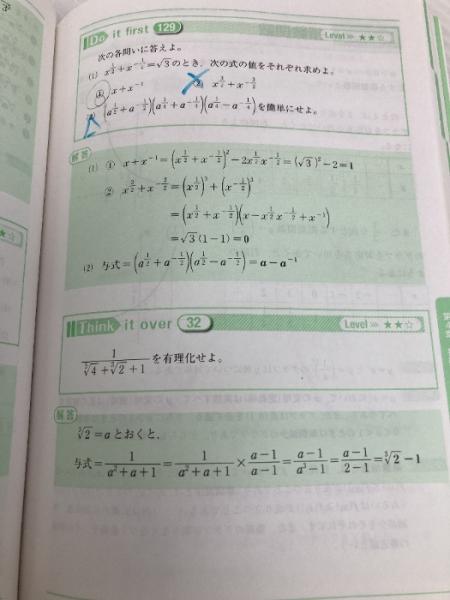 Do it first 129 Level≫ ★★☆
次の各問いに答えよ。
(1) x^{1/2}+x^{-1/2}=√3のとき、次の式の値をそれぞれ求めよ。
① x+x^{-1} ② x^{3/2}+x^{-3/2}
(2) (a^{1/2}+a^{-1/2})(a^{1/4}+a^{-1/4})(a^{1/4}-a^{-1/4})を簡単にせよ。
解答
(1) ① x+x^{-1}=(x^{1/2}+x^{-1/2})^2-2x^{1/2}x^{-1/2}=(√3)^2-2=1
② x^{3/2}+x^{-3/2}=(x^{1/2})^3+(x^{-1/2})^3
=(x^{1/2}+x^{-1/2})(x-x^{1/2}x^{-1/2}+x^{-1})
=√3(1-1)=0
(2) 与式=(a^{1/2}+a^{-1/2})(a^{1/2}-a^{-1/2})=a-a^{-1}
Think it over 32 Level≫ ★★☆
1/(∛4+∛2+1)を有理化せよ。
解答
∛2=aとおくと、
与式=1/(a^2+a+1)=1/(a^2+a+1)×(a-1)/(a-1)=(a-1)/(a^3-1)=(a-1)/(2-1)=∛2-1